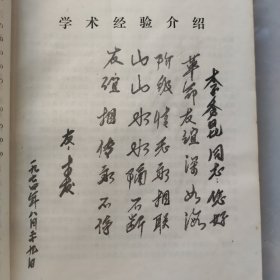 学术经验介绍
李香昆同志：您好
革命友谊深如海
阶级情永相联
山山水水隔不断
友谊相传永不停
一九七四年八月二十九日